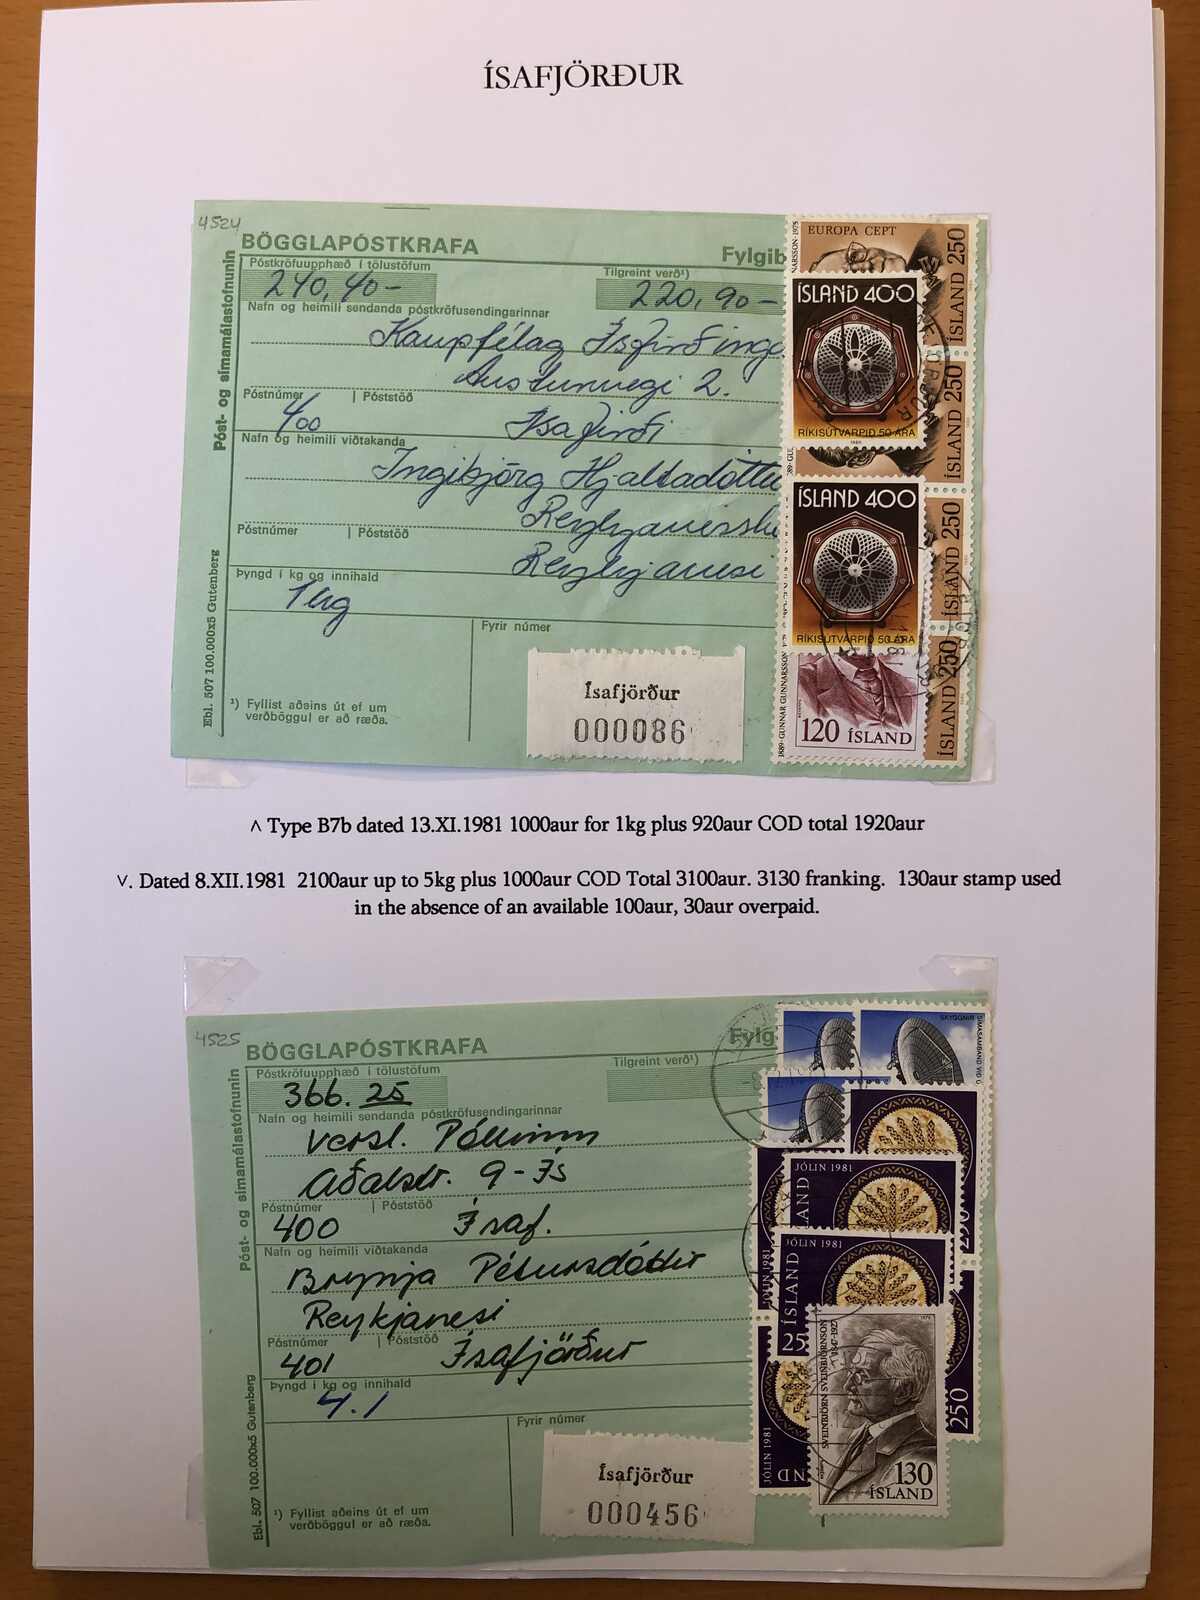 ÍSAFJÖRÐUR
4524
BÖGGLAPÓSTKRAFA
Fylgib
Póst- og símamálastofnunin
Póstkröfuupphæð í tölustöfum
240,40-
Tilgreint verð¹)
220,90-
Nafn og heimili sendanda póstkröfusendingarinnar
Kaupfélag Ísfirðinga
Austurvegi 2.
Póstnúmer | Póststöð
400 Ísafirði
Nafn og heimili viðtakanda
Ingibjörg Hjaltadóttir
Reykjanesi
Póstnúmer | Póststöð
Þyngd í kg og innihald
1 kg
Fyrir númer
Ebl. 507 100.000x5 Gutenberg
¹) Fyllist aðeins út ef um
verðböggul er að ræða.
Ísafjörður
000086
EUROPA CEPT
ÍSLAND 250
ÍSLAND 400
RÍKISÚTVARPIÐ 50 ÁRA
1980
ÍSLAND 250
ÍSLAND 400
RÍKISÚTVARPIÐ 50 ÁRA
ÍSLAND 250
ÍSLAND 250
1889 · GUNNAR GUNNARSSON
120 ÍSLAND
˄ Type B7b dated 13.XI.1981 1000aur for 1kg plus 920aur COD total 1920aur
˅. Dated 8.XII.1981 2100aur up to 5kg plus 1000aur COD Total 3100aur. 3130 franking. 130aur stamp used
in the absence of an available 100aur, 30aur overpaid.
4525
BÖGGLAPÓSTKRAFA
Fylg
Póst- og símamálastofnunin
Póstkröfuupphæð í tölustöfum
366.25
Tilgreint verð¹)
Nafn og heimili sendanda póstkröfusendingarinnar
Versl.
Aðalstr. 9 - Ís
Póstnúmer | Póststöð
400 Ísaf.
Nafn og heimili viðtakanda
Brynja Pétursdóttir
Reykjanesi
Póstnúmer | Póststöð
401 Ísafjörður
Þyngd í kg og innihald
4.1
Fyrir númer
Ebl. 507 100.000x5 Gutenberg
¹) Fyllist aðeins út ef um
verðböggul er að ræða.
Ísafjörður
000456
SKYGGNIR
JÓLIN 1981
ÍSLAND
JÓLIN 1981
ÍSLAND
25
JÓLIN 1981
JÓLIN 1981
250
250
SVEINBJÖRN SVEINBJÖRNSSON
1847-1927
130
ÍSLAND